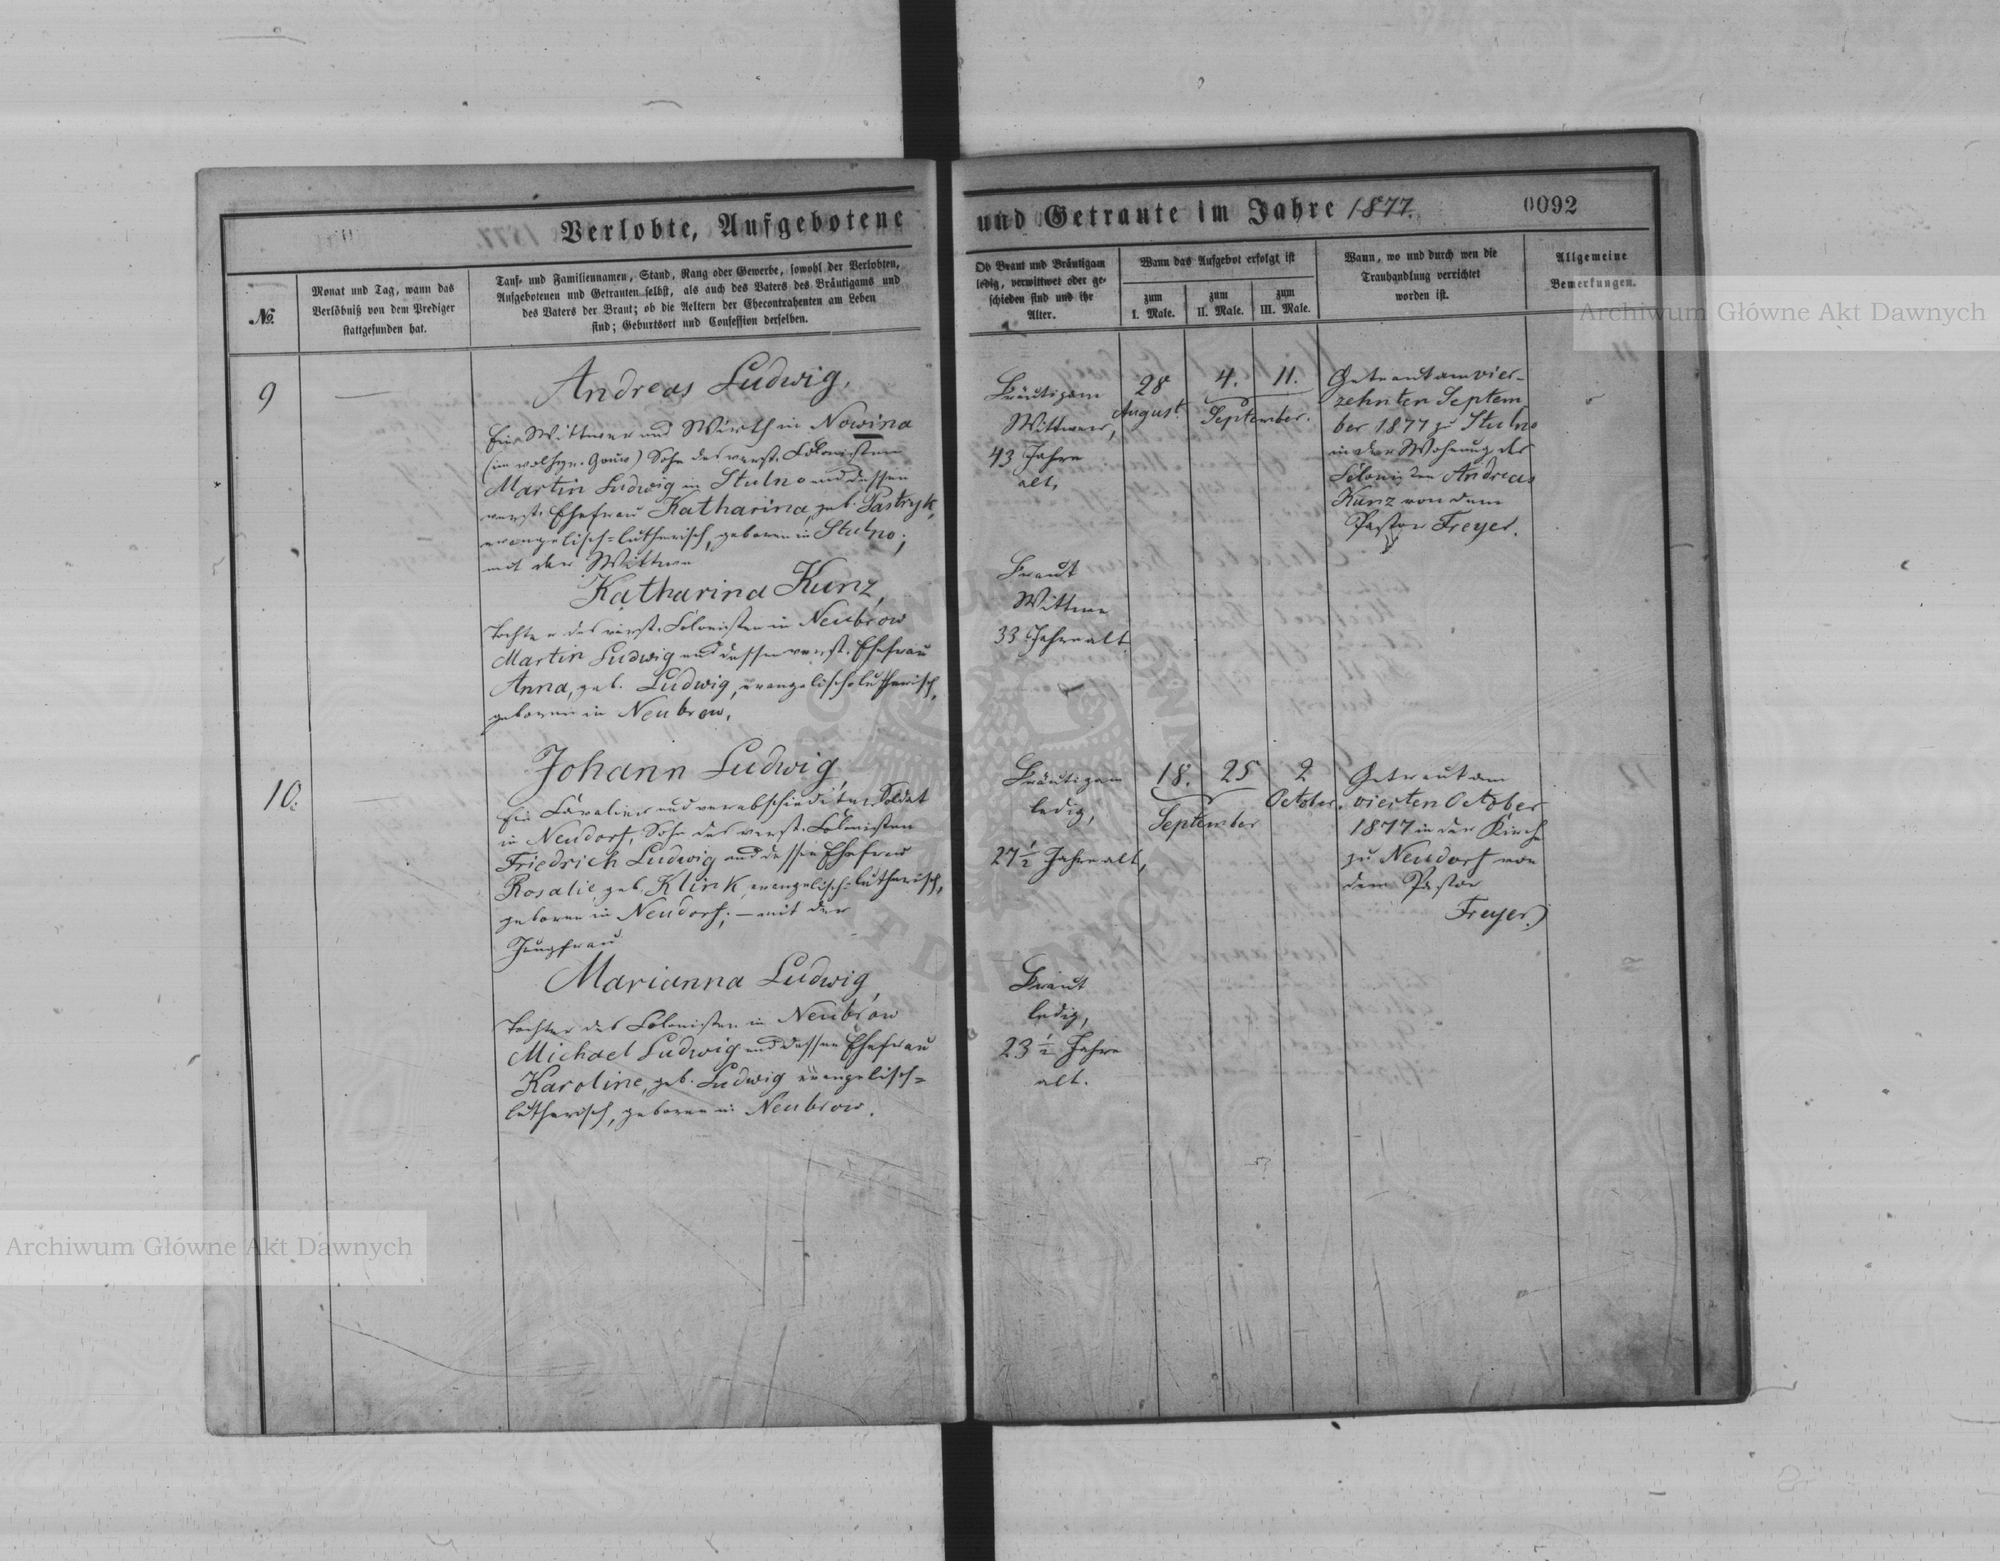 Verlobte, Aufgebotene
und Getraute im Jahre 1877.
0092
№.
Monat und Tag, wann das
Verlöbniß von dem Prediger
stattgefunden hat.
Tauf- und Familiennamen, Stand, Rang oder Gewerbe, sowohl der Verlobten,
Aufgebotenen und Getrauten selbst, als auch des Vaters des Bräutigams und
des Vaters der Braut; ob die Aeltern der Ehecontrahenten am Leben
sind; Geburtsort und Confession derselben.
Ob Braut und Bräutigam
ledig, verwittwet oder ge-
schieden sind und ihr
Alter.
Wann das Aufgebot erfolgt ist
zum
I. Male.
zum
II. Male.
zum
III. Male.
Wann, wo und durch wen die
Trauhandlung verrichtet
worden ist.
Allgemeine
Bemerkungen.
9
Andreas Ludwig,
Ein Wittwer und Wirth in Nowina
(im wolhyn. Gouv) Sohn des verst. Colonisten
Martin Ludwig in Stulno und dessen
verst. Ehefrau Katharina, geb. Pastryk,
evangelisch-lutherisch, geboren in Stulno;
mit der Wittwe
Katharina Kunz,
Tochter des verst. Colonisten in Neubrow
Martin Ludwig und dessen verst. Ehefrau
Anna, geb. Ludwig, evangelisch-lutherisch,
geboren in Neubrow.
Bräutigam
Wittwer,
43 Jahre
alt,
Braut
Wittwe
33 Jahre alt.
28
August.
4. 11.
September.
Getraut am vier-
zehnten Septem
ber 1877 zu Stulno
in der Wohnung des
Colonisten Andreas
Kunz von dem
Pastor Freyer.
10.
Johann Ludwig,
Ein Cavalier und verabschiedeter Soldat
in Neudorf, Sohn des verst. Colonisten
Friedrich Ludwig und dessen Ehefrau
Rosalie, geb. Klink, evangelisch-lutherisch,
geboren in Neudorf; — mit der
Jungfrau
Marianna Ludwig,
Tochter des Colonisten in Neubrow
Michael Ludwig und dessen Ehefrau
Karoline, geb. Ludwig evangelisch-
lutherisch, geboren in Neubrow.
Bräutigam
ledig,
27½ Jahre alt,
Braut
ledig,
23½ Jahre
alt.
18. 25
September
2
October.
Getraut am
vierten October
1877 in der Kirche
zu Neudorf von
dem Pastor
Freyer.
Archiwum Główne Akt Dawnych
Archiwum Główne Akt Dawnych